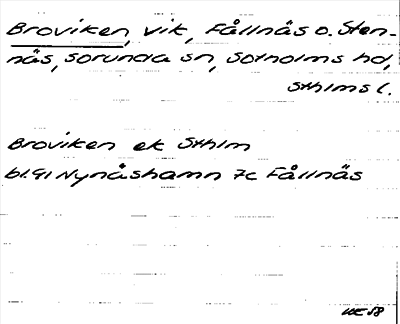 Broviken, vik, Fållnäs o. Sten-
näs, Sorunda sn, Sotholms hd,
Sthlms l.
Broviken ek Sthlm
bl. 91 Nynäshamn 7c Fållnäs